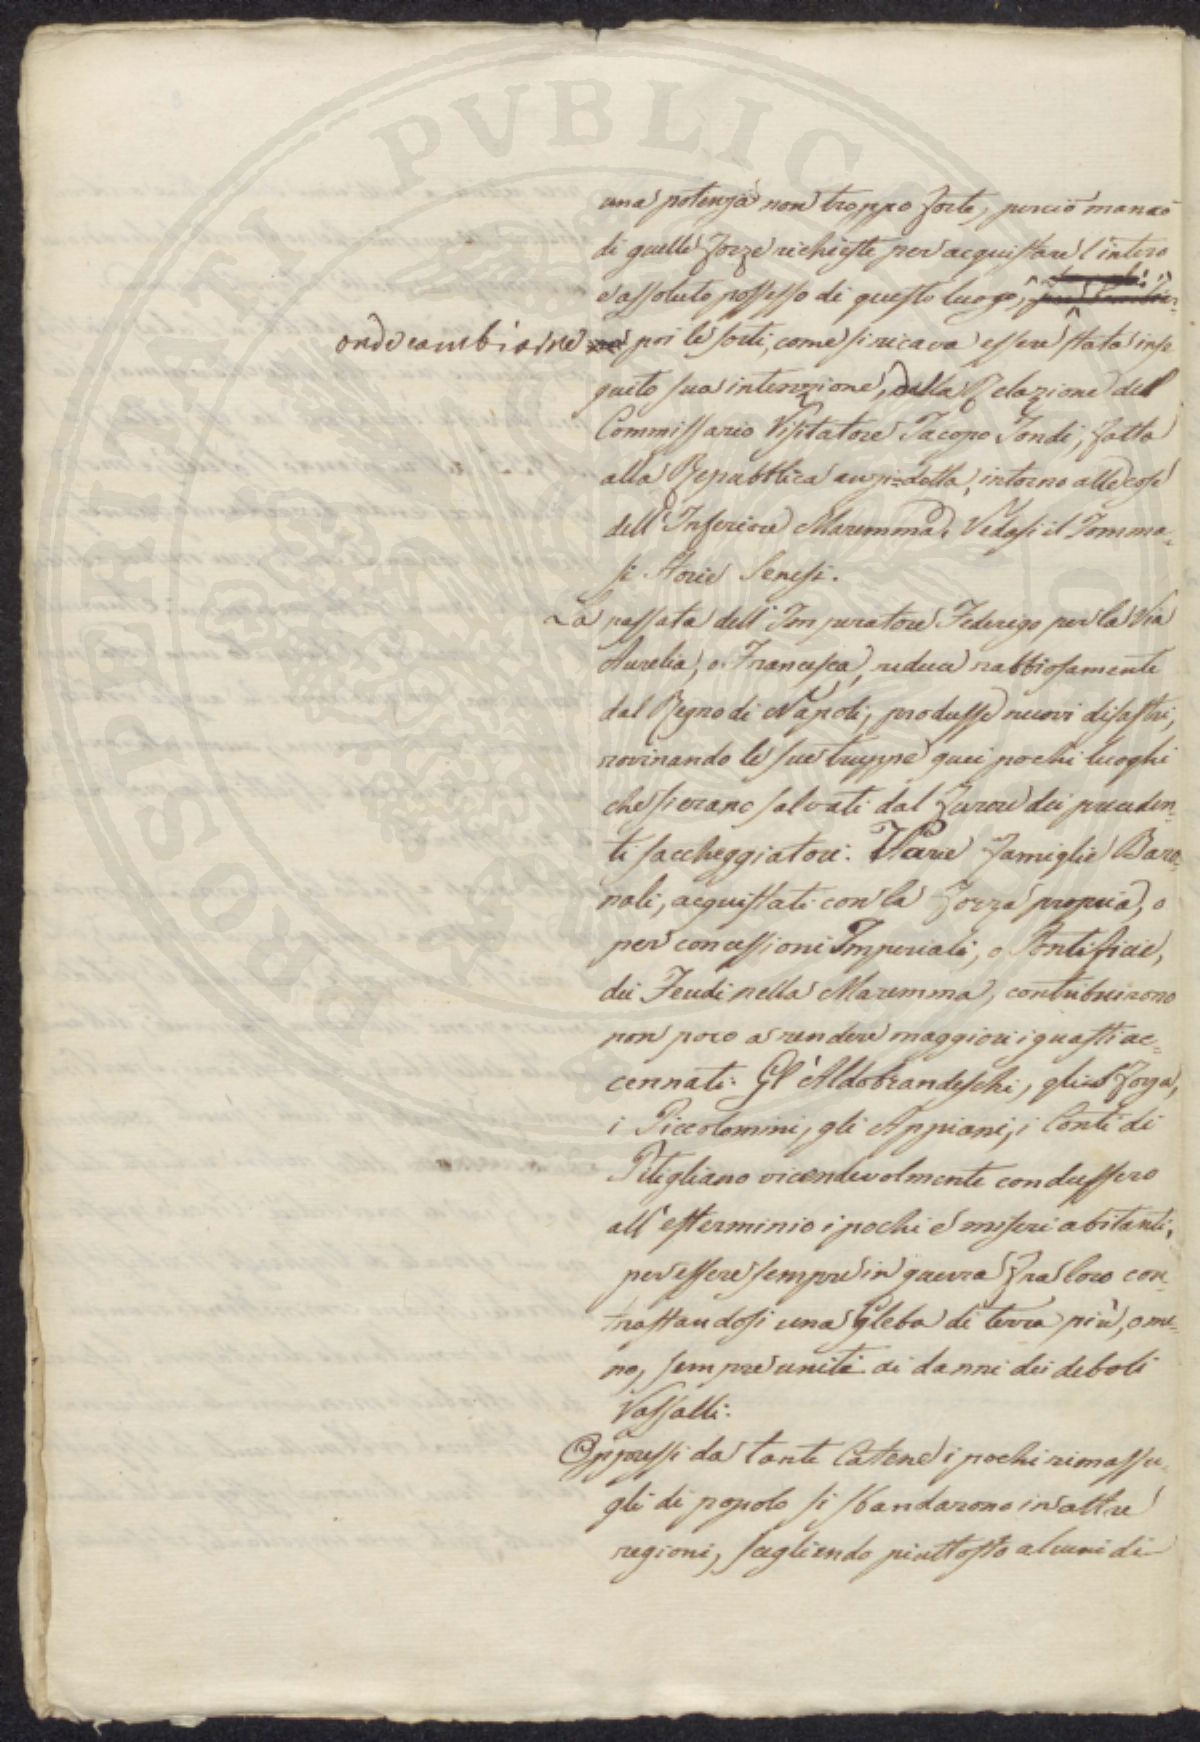 una potenza non troppo forte, perciò mancò
di quelle forze richieste per acquistare l'intero
e assoluto possesso di questo luogo,
onde cambiarne poi le sorti, come si ricava essere stata in se
guito sua intenzione, dalla Relazione del
Commissario Visitatore Jacopo Tondi, fatta
alla Repubblica anzi-detta, intorno alle cose
dell'Inferiore Maremma. Vedasi il Tomma-
si Storie Senesi.
La passata dell'Imperatore Federigo per la Via
Aurelia, o Francesca, reduce rabbiosamente
dal Regno di Napoli, produsse nuovi disastri,
rovinando le sue truppe quei pochi luoghi
che si erano salvati dal furore dei preceden-
ti saccheggiatori. Varie famiglie Baro-
nali, acquistati con la forza propria, o
per concessioni Imperiali, o Pontificie,
dei Feudi nella Maremma, contribuirono
non poco a rendere maggiori i guasti ac-
cennati. Gl'Aldobrandeschi, gli Sforza,
i Piccolomini, gli Appiani, i Conti di
Pitigliano vicendevolmente condussero
all'esterminio i pochi e miseri abitanti,
per essere sempre in guerra fra loro con-
trastandosi una Gleba di terra più, o me-
no, sempre uniti ai danni dei deboli
Vassalli.
Oppressi da tante Catene i pochi rimasu-
gli di popolo si sbandarono in altre
regioni, scegliendo piuttosto alcuni di
PVBLIC